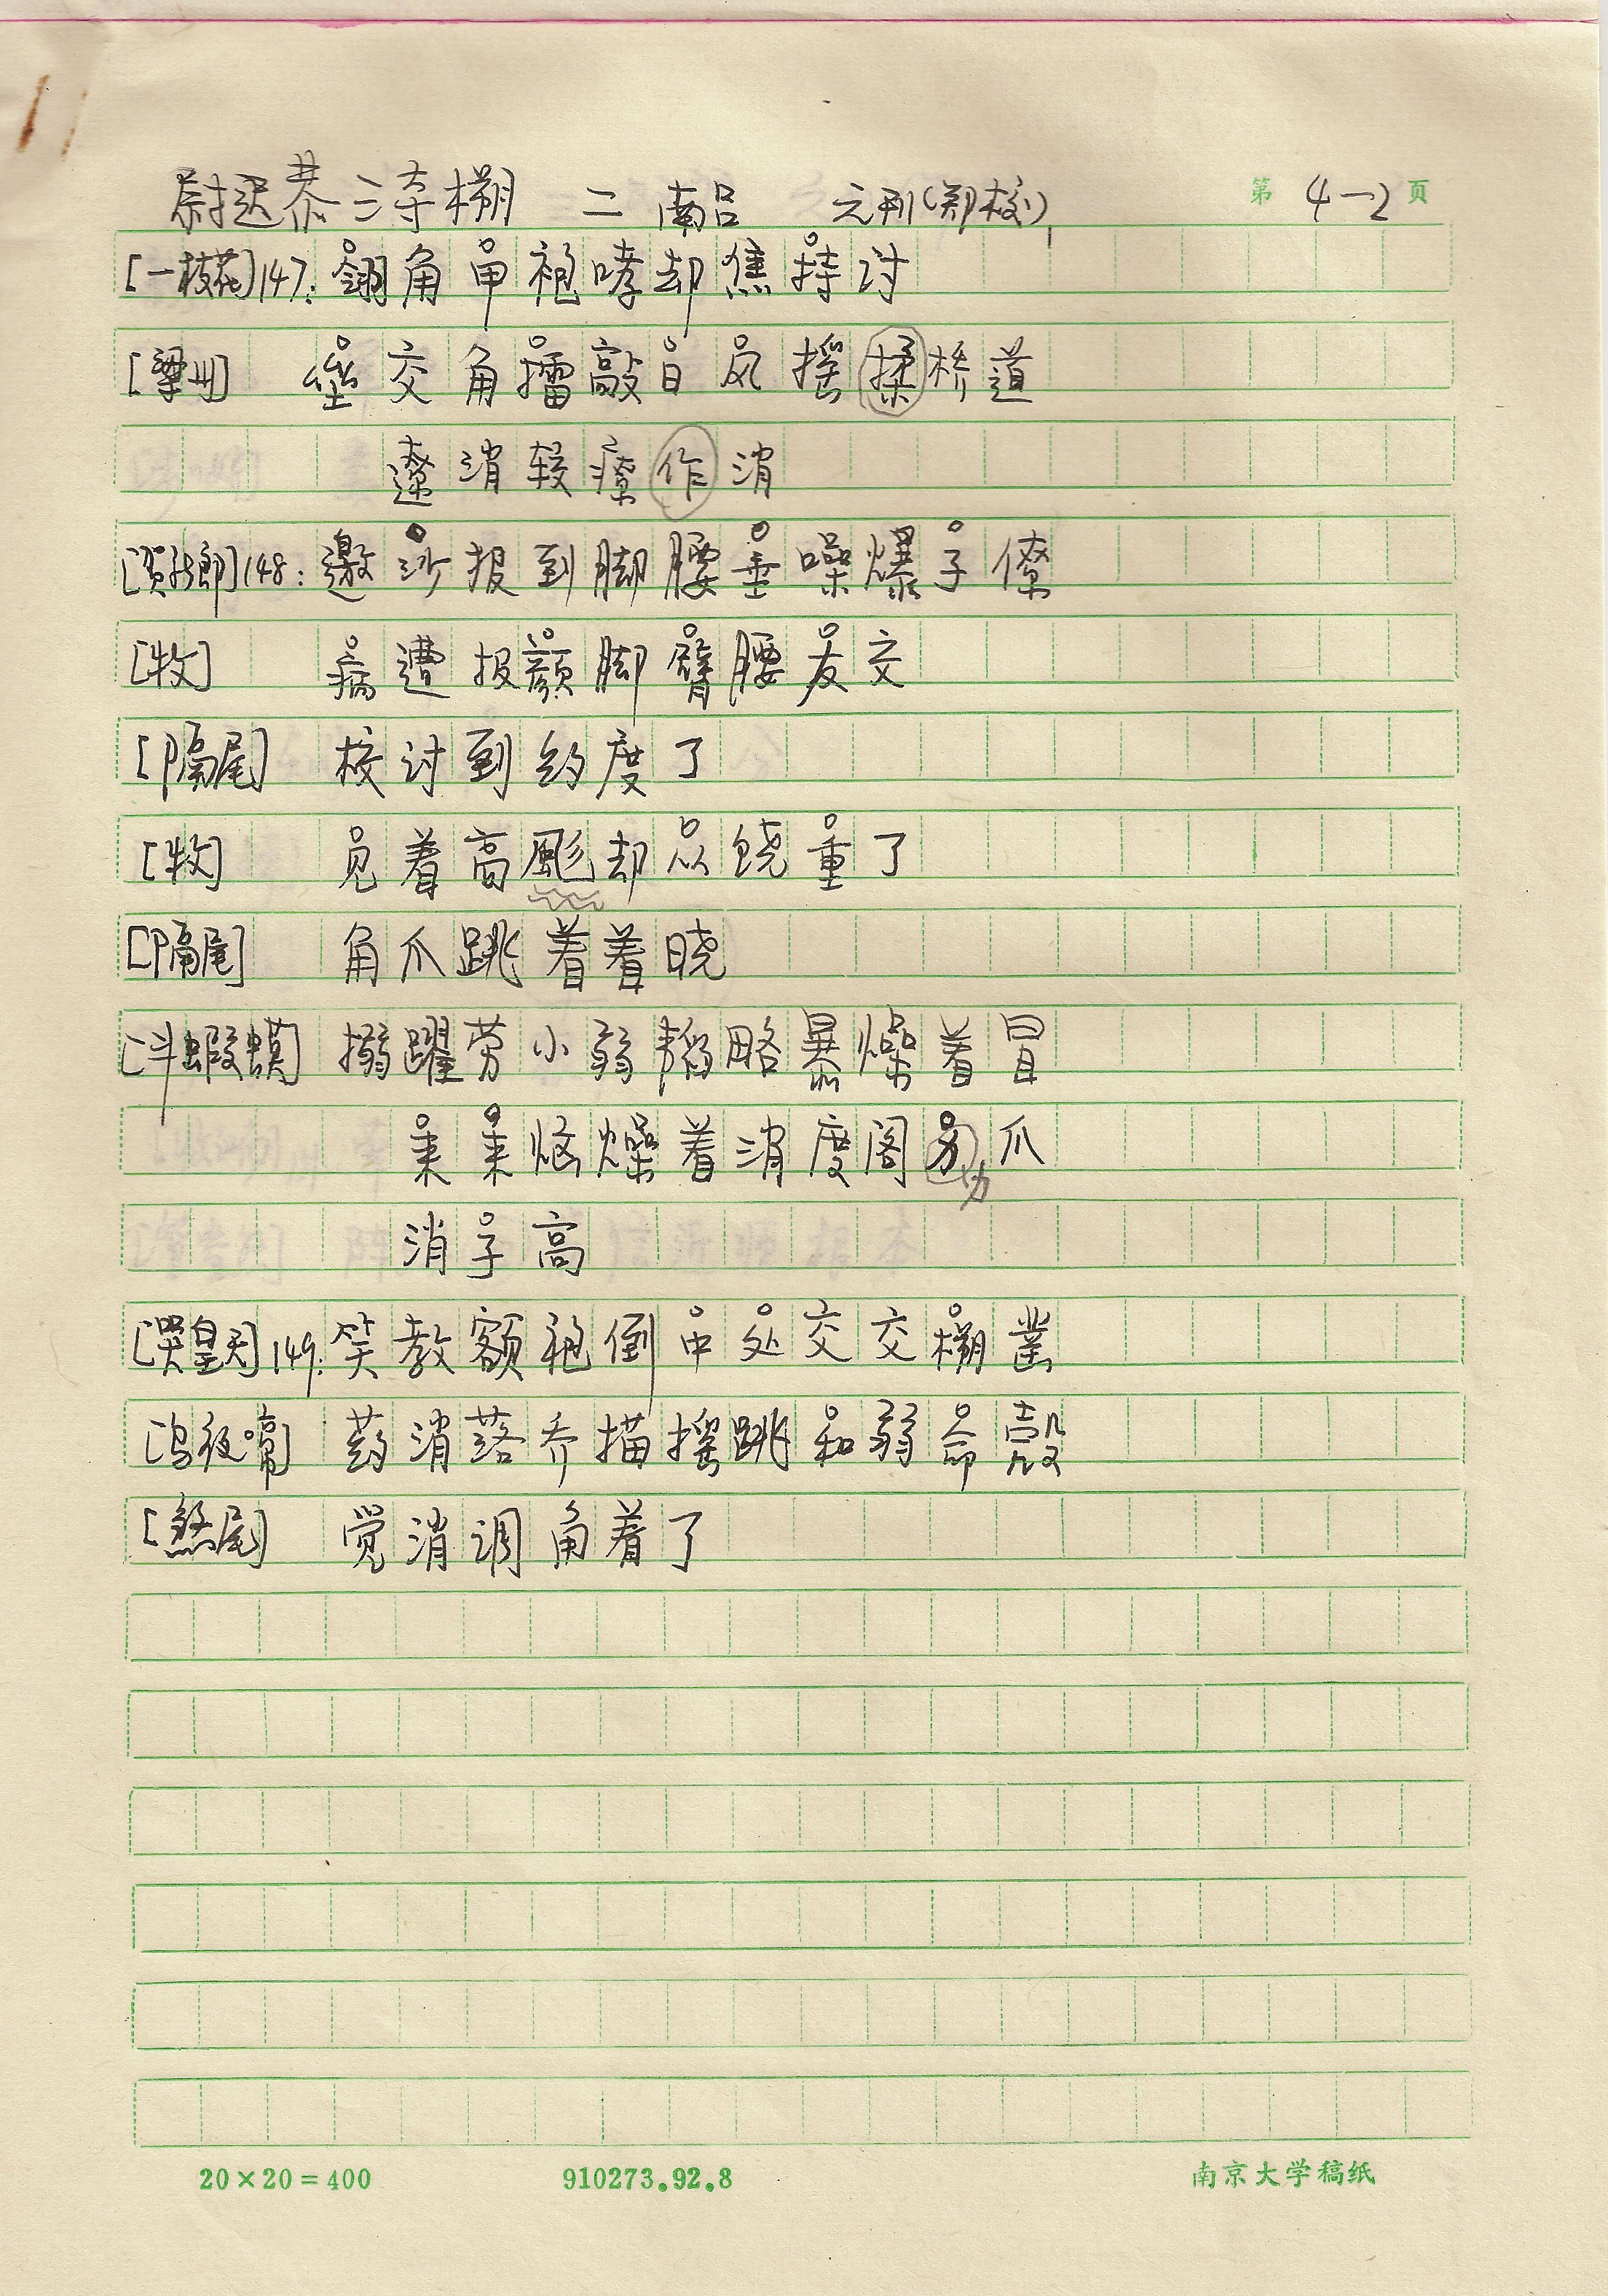 尉迟恭三夺槊 二 南吕 元刊(郑校) 第 4—2 页
[一枝花]147: 翎角甲袍哮却焦持讨
[梁州] 垒交角擂敲日风摇揉桥道
遼消较療作消
[贺新郎]148: 邀沙报到脚腰垂噪爆子僚
[牧] 病遭报颜脚臂腰友交
[隔尾] 校讨到约度了
[牧] 见着高彪却众饶重了
[隔尾] 角爪跳着着晓
[斗蝦蟆] 搦躍劳小弱韬略暴燥着冒
来来恼燥着消度阁另力爪
消子高
[哭皇天]149: 笑教额袍倒中处交交槊凿
[乌夜啼] 药消落乔描摇跳和弱命殻
[煞尾] 觉消调角着了
20×20=400 910273.92.8 南京大学稿纸